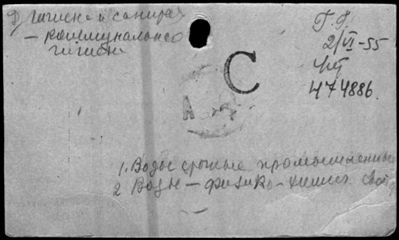 Гигиена и санитар
— коммунальная
гигиена
Г. Г.
2/VI-55
474886.
С
А
1. Воды сточные промышленные
2 Воды — физико-химич. свой